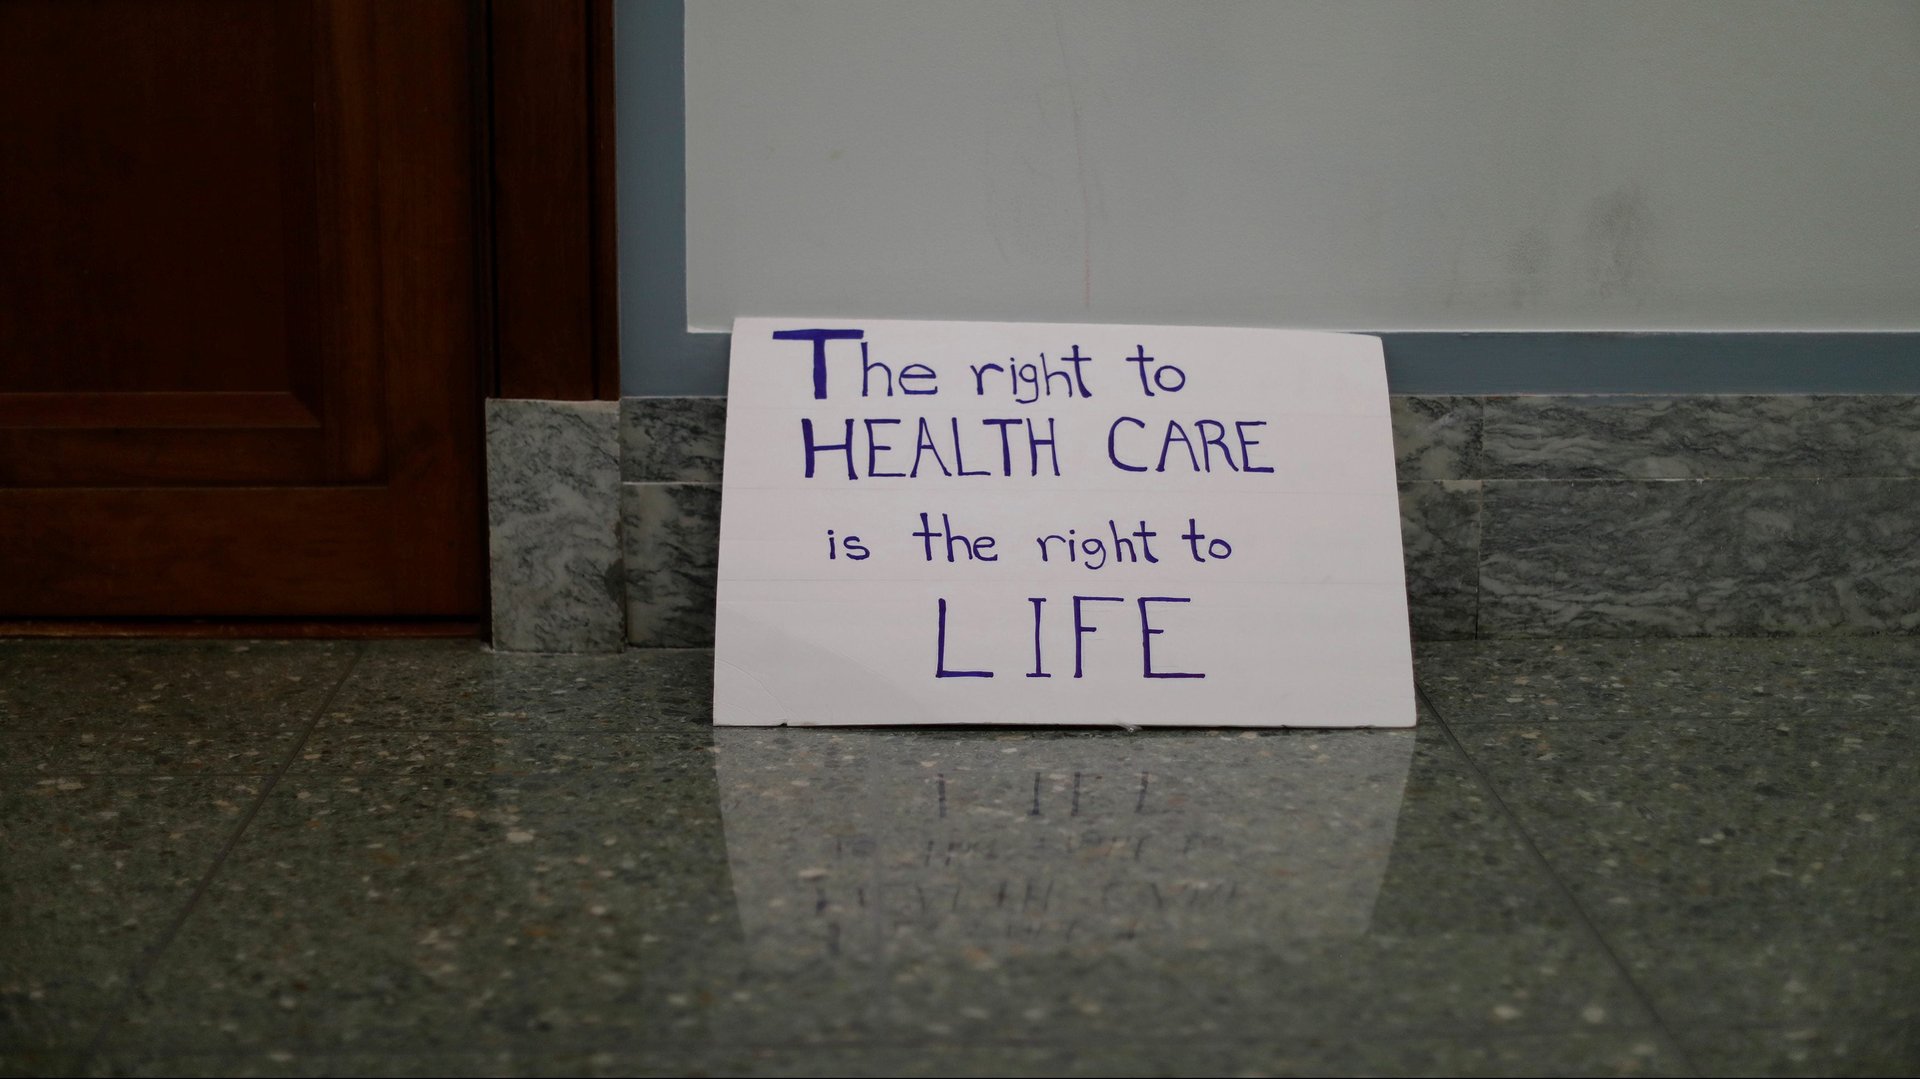 The right to
HEALTH CARE
is the right to
LIFE